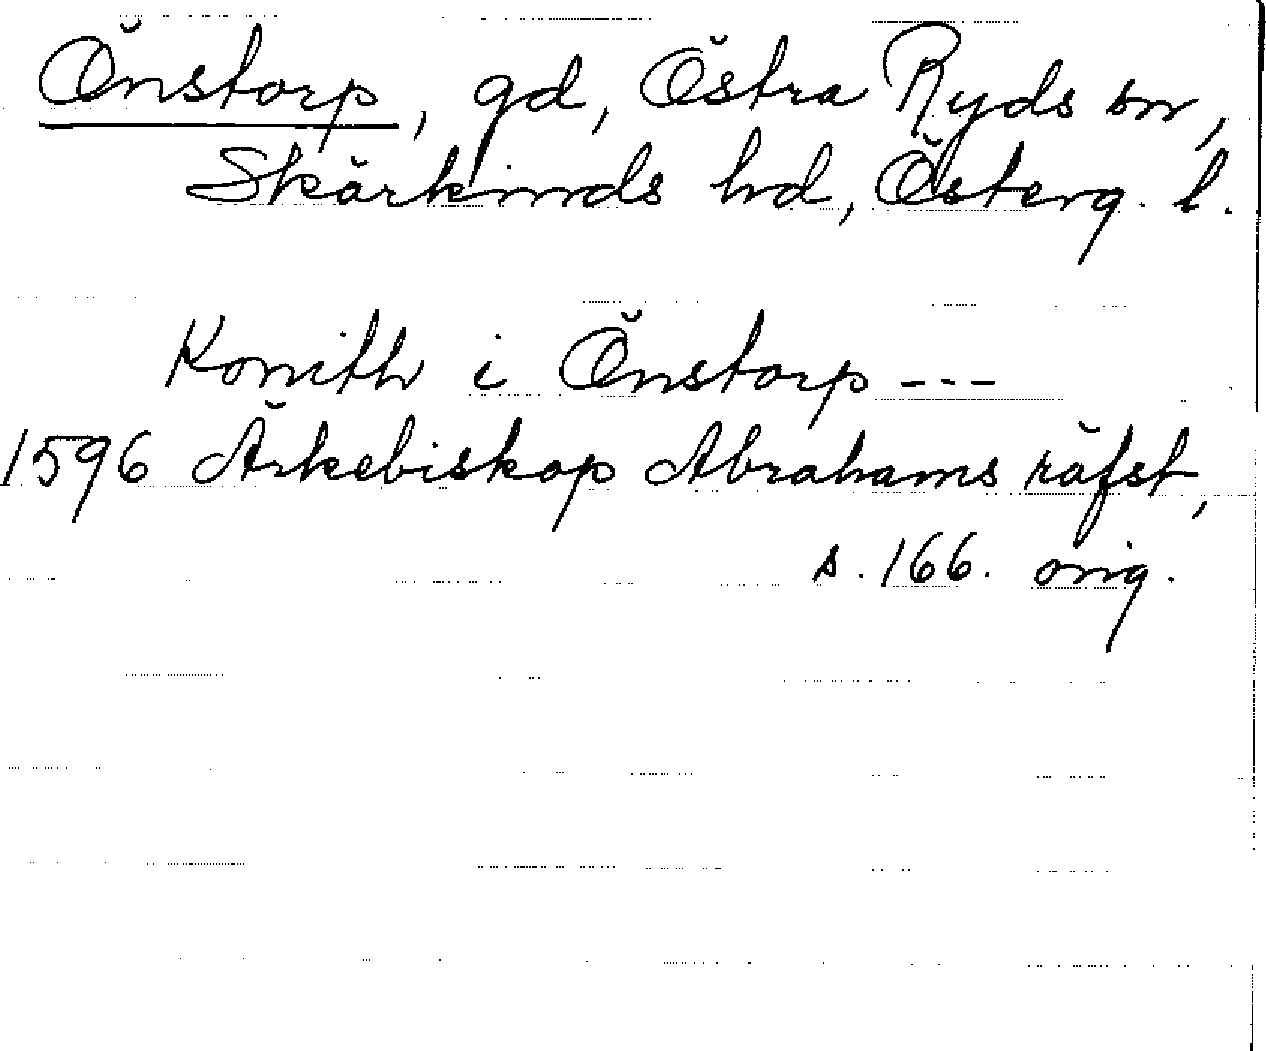 Önstorp, gd, Östra Ryds sn,
Skärkinds hd, Österg. l.
Kornith i Önstorp ---
1596 Ärkebiskop Abrahams räfst,
s. 166. orig.